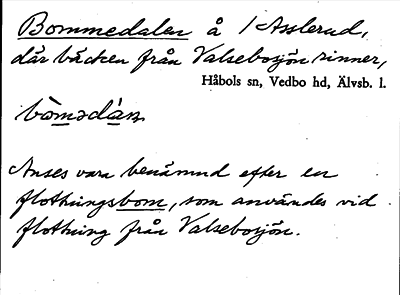 Bommedalen å 1 Asslerud,
där bäcken från Valsebosjön rinner,
Håbols sn, Vedbo hd, Älvsb. l.
bòmədáɳ
Anses vara benämnd efter en
flottningsbom, som användes vid
flottning från Valsebosjön.